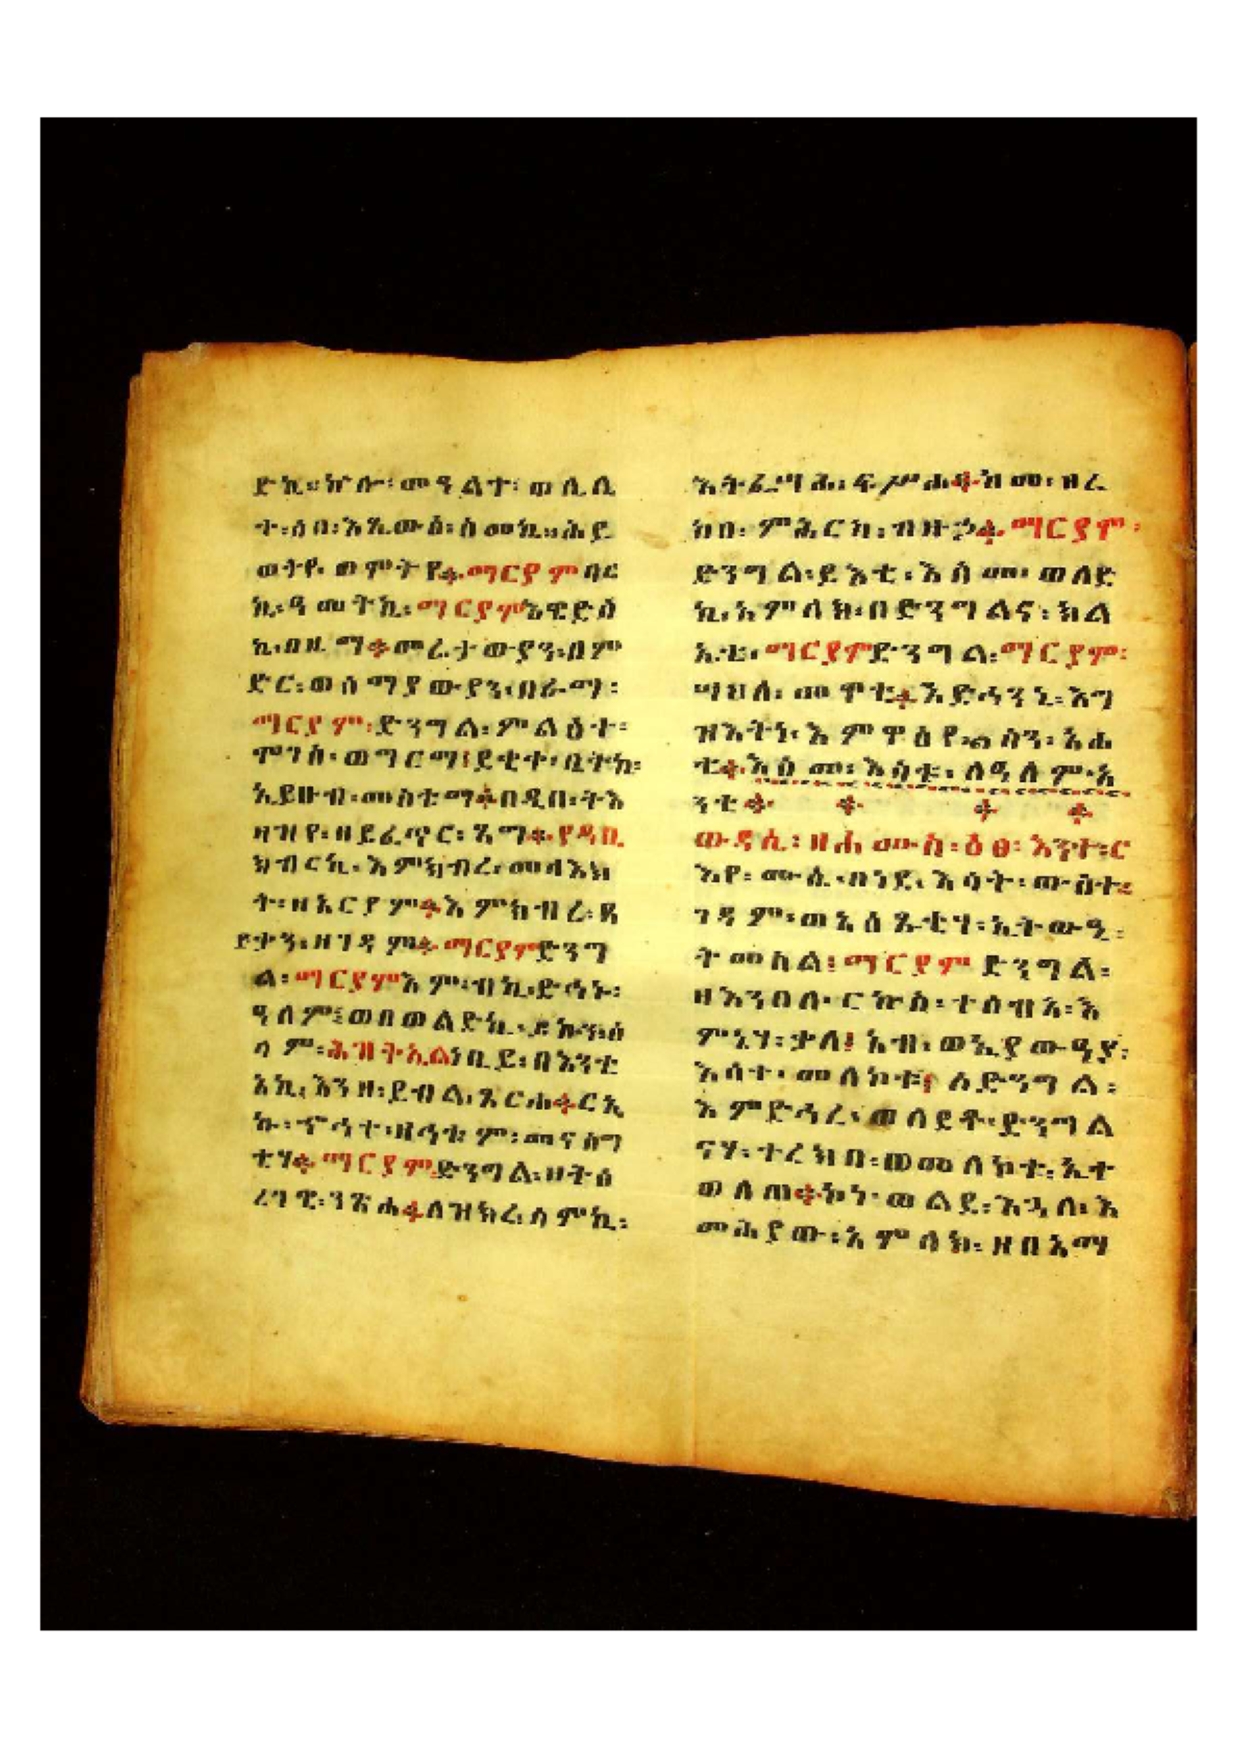 ድኪ። ኵሉ፡ መዓልተ፡ ወሌሊ
ተ፡ ሰበ፡
ወትየ፡ ወሞትየ፨ ማርያም በረ
ኪ፡ ዓመትኪ፡ ማርያም
ኪ፡ በዚ ማ፨ መሬታውያን፡ በም
ድር፡ ወሰማያውያን፡ በራማ፡
ማርያም፡ ድንግል፡ ምልዕተ፡
ሞገስ፡ ወግርማ፤
በዲበ፡ ትእ
ዛዝየ፡ ዘይፈጥር፡
ክብርኪ፡ እምክብረ፡ መላእክ
ት፡ ዘአርያም፨ እምክብረ፡ ጻ
ድቃን፡ ዘገዳም፨ ማርያም ድንግ
ል፡ ማርያም እም፡ ብኪ፡ ድኅኑ፡
ዓለም፤ ወበወልድኪ፡ ይኩን፡ ሰ
ላም፡ ሕዝቅኤል ነቢይ፡ በእንቲ
አኪ፡ እንዘ፡ ይብል፡ ጸርሐ፨ ርኢ
ኩ፡ ኆኅተ፡ ዘኅቱም፡ መናስግ
ቲሃ፨ ማርያም ድንግል፡ ዘትሰ
ረገዊ፡ ንጽሐ፨ ለዝክረ፡ ስምኪ፡
እትፌሣሕ፡ ፍሥሐ፨ ከመ፡ ዘረ
ከበ፡ ምሕርካ፡ ብዙኃ፨ ማርያም፡
ድንግል፡ ይእቲ፡ እስመ፡ ወለድ
ኪ፡ አምላክ፡ በድንግልና፡ ክል
ኤቲ፡ ማርያም ድንግል፡ ማርያም፡
ሣህለ፡ መዋቲ፨ እድኃንኒ፡ እግ
ዝእትነ፡ እምዋዕየ፡ ሲኦን፡ አሐ
ቲ፨ እስመ፡ እስቱ፡ ለዓለም፡ አ
ንቲ፨ ፨ ፨ ፨
ውዳሴ፡ ዘሐሙስ፡ ዕፀ፡ እንተ፡ ር
እየ፡ ሙሴ፡ በነደ፡ እሳት፡ ውስተ፡
ገዳም፡ ወአዕጹቂሃ፡ ኢትውዒ፡
ትመስል፤ ማርያም ድንግል፡
ዘእንበለ፡ ርኩስ፡ ተሰብአ፡ እ
ምኔሃ፡ ቃለ፤ አብ፡ ወኢያውዓያ፡
እሳተ፡ መለኮቱ፤ ለድንግል፡
እምድኅረ፡ ወለደቶ፡ ድንግል
ናሃ፡ ተረክበ፡ ወመለኮቱ፡ ኢተ
ወለጠ፨ ኮነ፡ ወልደ፡ እጓለ፡ እ
መሕያው፡ አምላክ፡ ዘበአማ